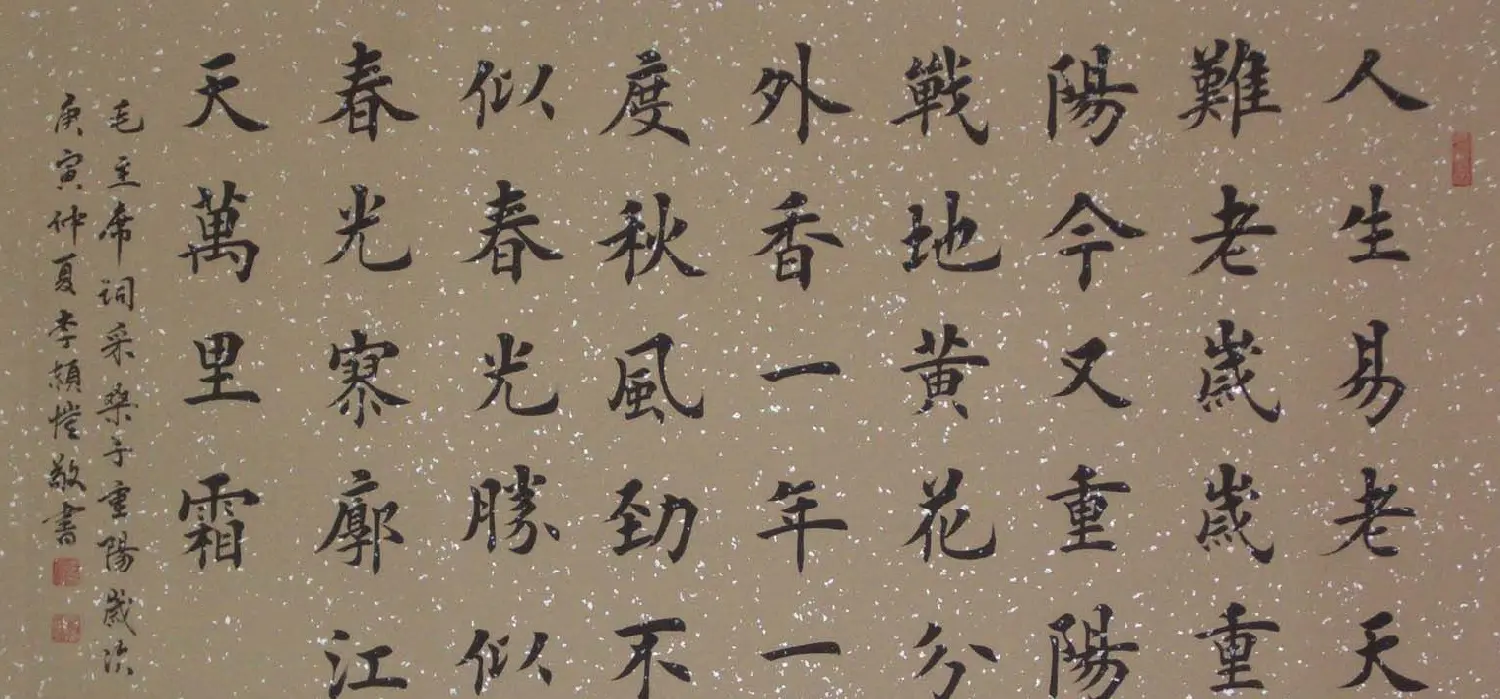 人生易老天
難老歲歲重
陽今又重陽
戰地黃花分
外香一年一
度秋風勁不
似春光勝似
春光寥廓江
天萬里霜
毛主席詞采桑子重陽歲次
庚寅仲夏李頻愷敬書